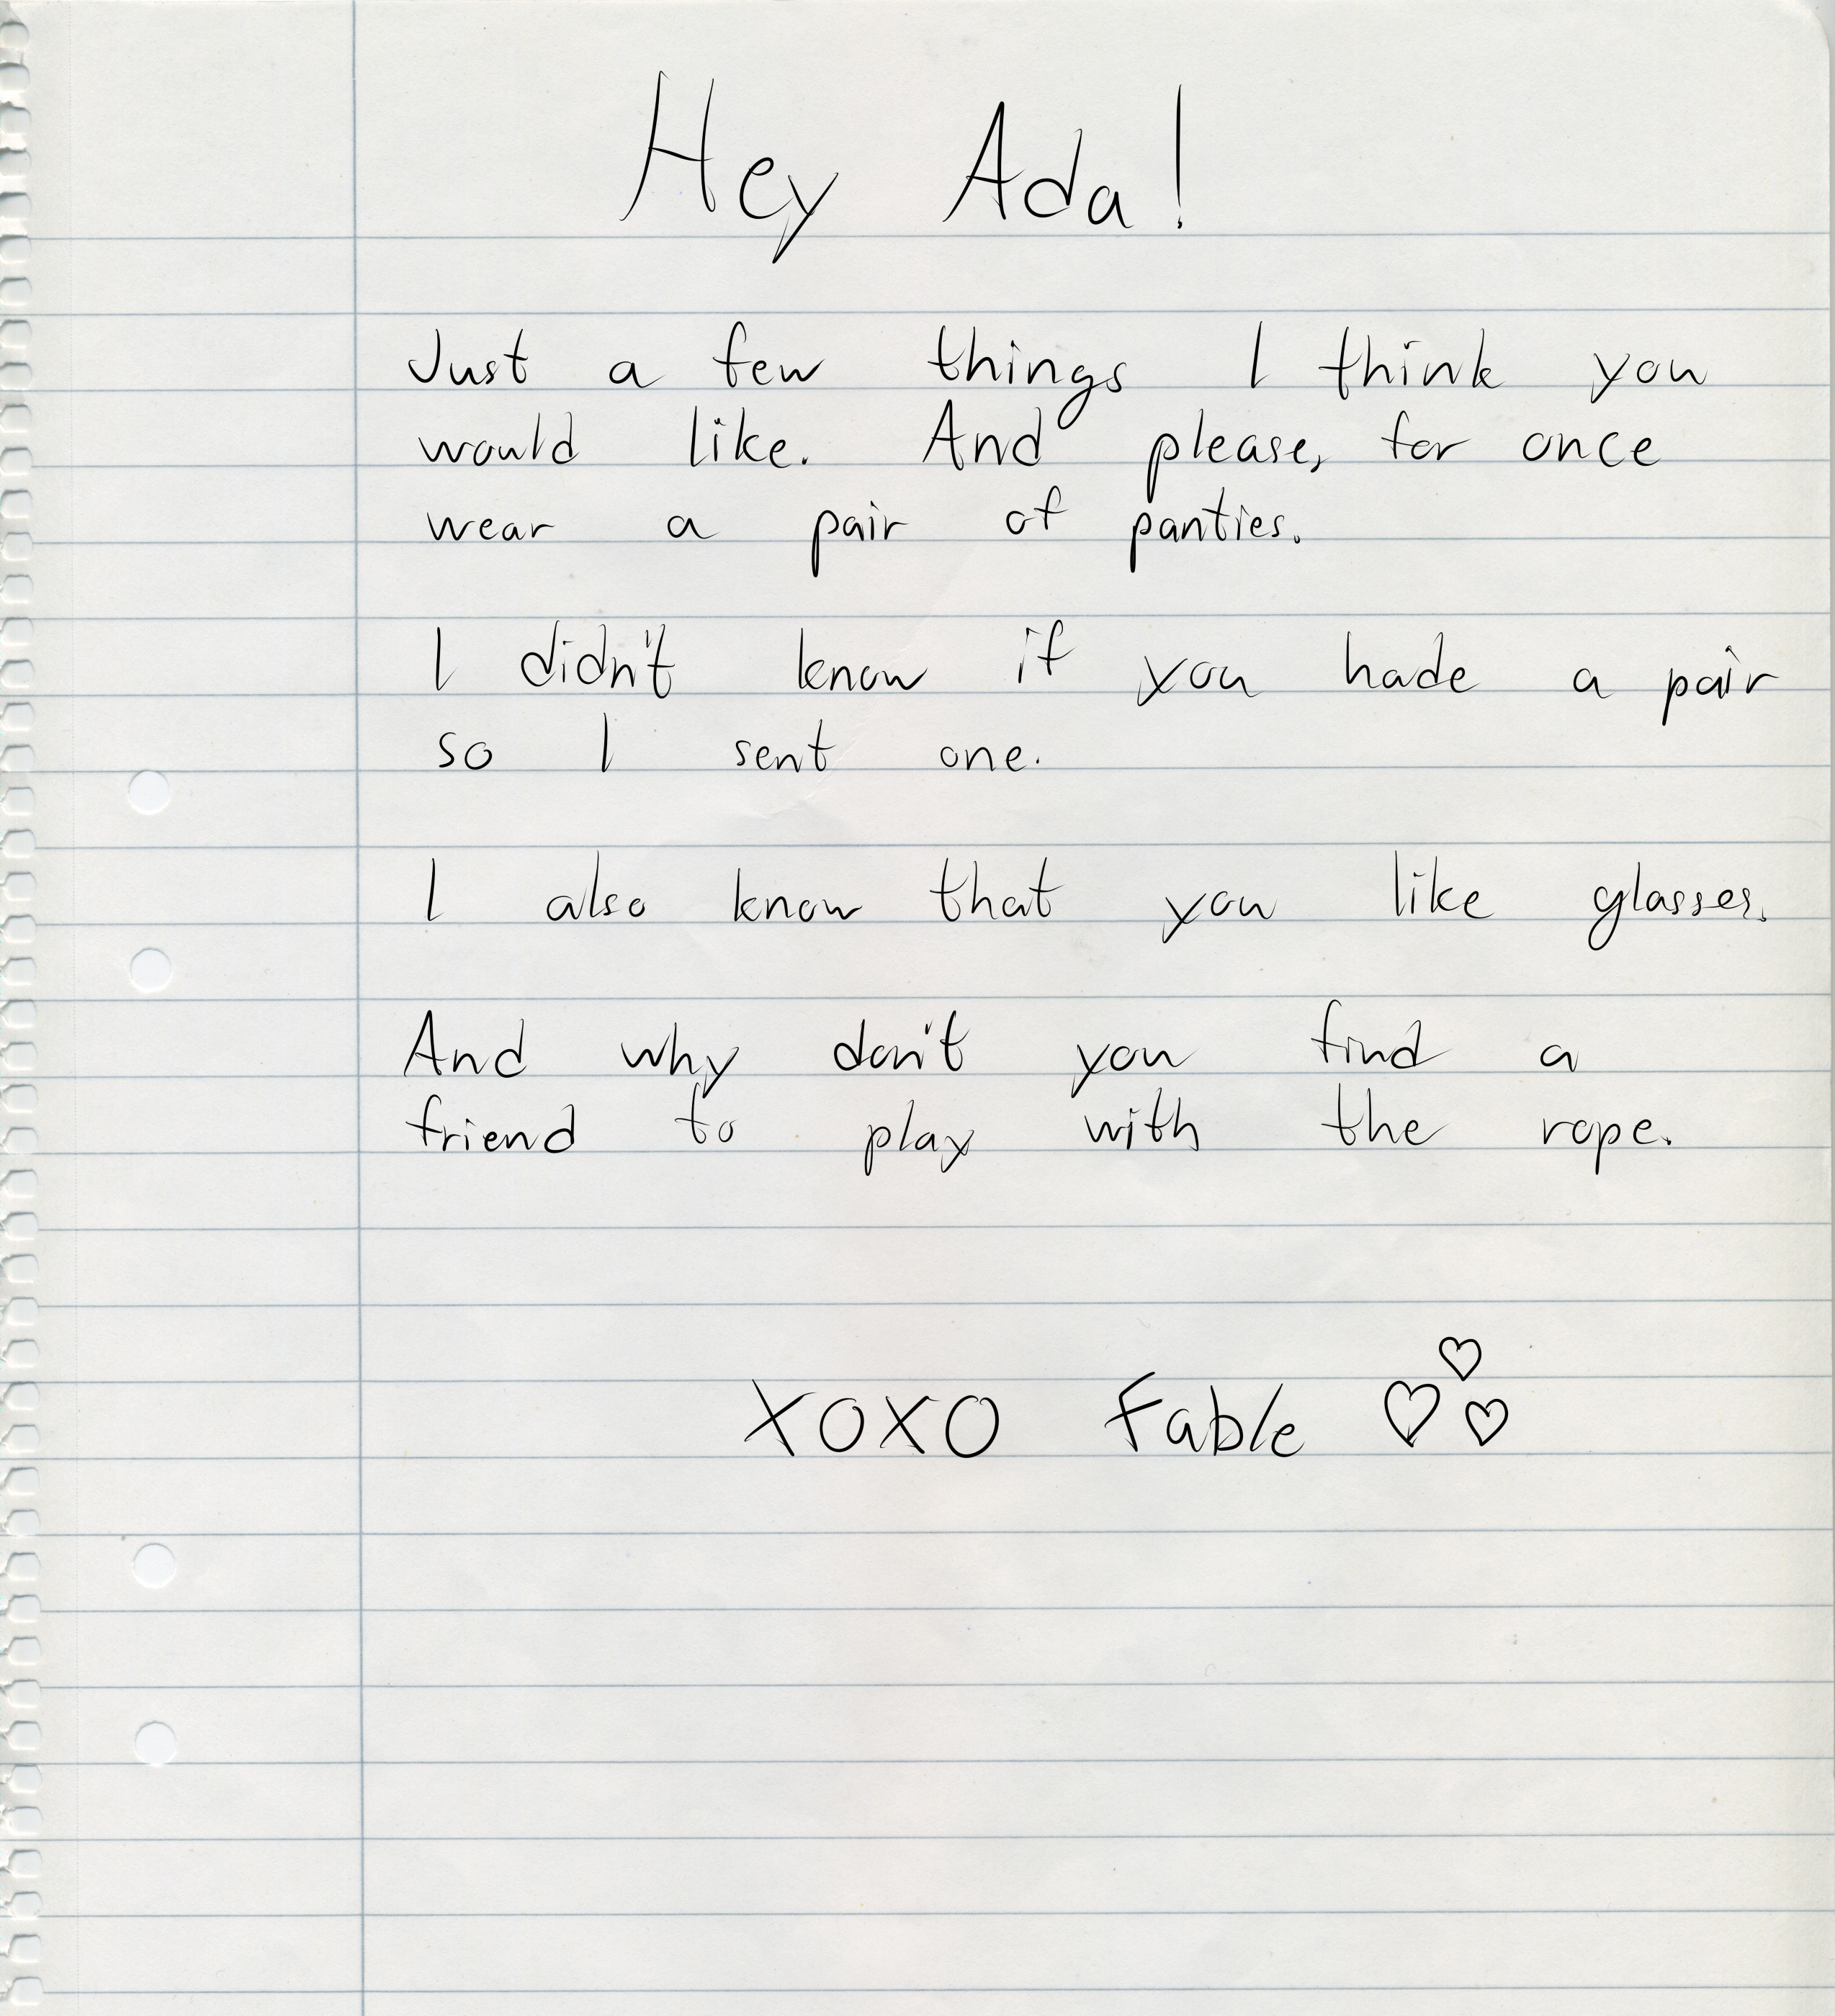 Hey Ada!
Just a few things I think you
would like. And please, for once
wear a pair of panties.
I didn't know if you hade a pair
so I sent one.
I also know that you like glasses.
And why don't you find a
friend to play with the rope.
XOXO Fable ♡♡♡